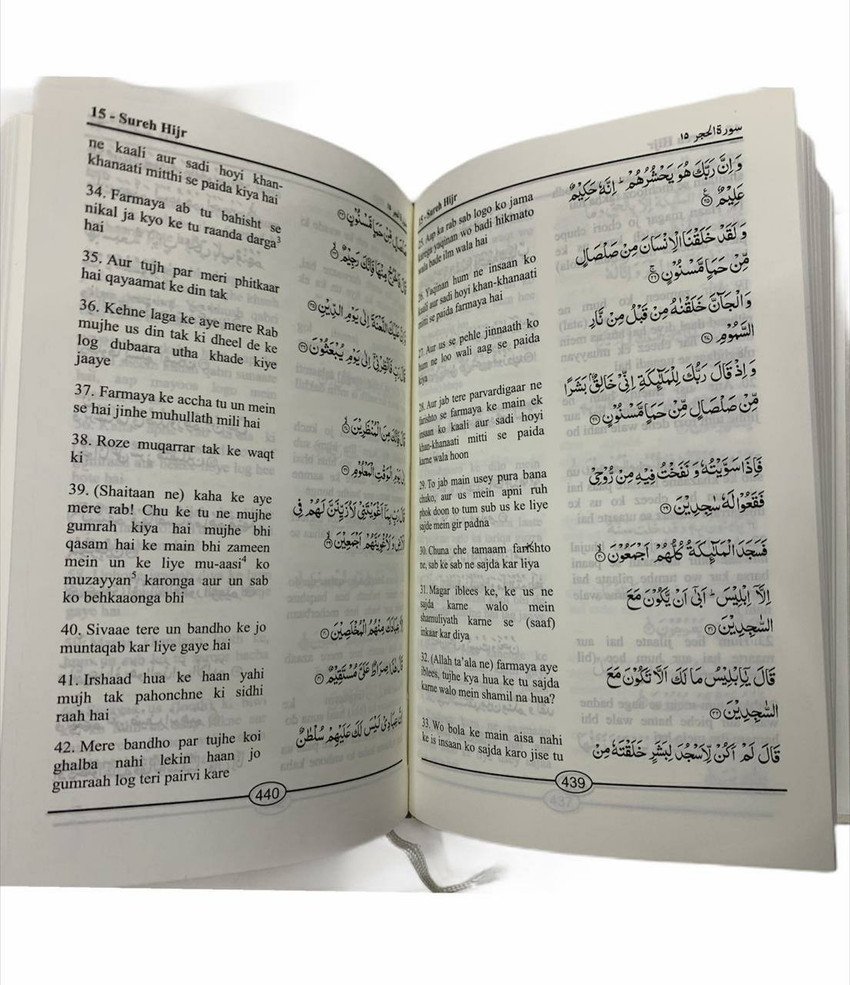 سورة الحجر ١٥
15 - Sureh Hijr
وَاِنَّ رَبَّكَ هُوَ يَحْشُرُهُمْ ؕ اِنَّهٗ حَكِيْمٌ
عَلِيْمٌ ۟ ٢٥
وَ لَقَدْ خَلَقْنَا الْاِنْسَانَ مِنْ صَلْصَالٍ
مِّنْ حَمَاٍ مَّسْنُوْنٍ ۟ ٢٦
وَ الْجَآنَّ خَلَقْنٰهُ مِنْ قَبْلُ مِنْ نَّارِ
السَّمُوْمِ ٢٧
وَ اِذْ قَالَ رَبُّكَ لِلْمَلٰٓىِٕكَةِ اِنِّيْ خَالِقٌۢ بَشَرًا
مِّنْ صَلْصَالٍ مِّنْ حَمَاٍ مَّسْنُوْنٍ ٢٨
فَاِذَا سَوَّيْتُهٗ وَ نَفَخْتُ فِيْهِ مِنْ رُّوْحِيْ
فَقَعُوْا لَهٗ سٰجِدِيْنَ ٢٩
فَسَجَدَ الْمَلٰٓىِٕكَةُ كُلُّهُمْ اَجْمَعُوْنَ ۙ ٣٠
اِلَّاۤ اِبْلِيْسَ ؕ اَبٰۤى اَنْ يَّكُوْنَ مَعَ
السّٰجِدِيْنَ ٣١
قَالَ يٰۤاِبْلِيْسُ مَا لَكَ اَلَّا تَكُوْنَ مَعَ
السّٰجِدِيْنَ ٣٢
قَالَ لَمْ اَكُنْ لِّاَسْجُدَ لِبَشَرٍ خَلَقْتَهٗ مِنْ
25. Aap ka rab sab logo ko jama
karega yaqinan wo badi hikmato
wala bade ilm wala hai
26. Yaqinan hum ne insaan ko
kaali aur sadi hoyi khan-khanaati
mitti se paida farmaya hai
27. Aur us se pehle jinnaath ko
hum ne loo wali aag se paida
kiya
28. Aur jab tere parvardigaar ne
farishto se farmaya ke main ek
insaan ko kaali aur sadi hoyi
khan-khanaati mitti se paida
karne wala hoon
29. To jab main usey pura bana
chuko, aur us mein apni ruh
phok doon to tum sub us ke liye
sajde mein gir padna
30. Chuna che tamaam farishto
ne, sab ke sab ne sajda kar liya
31. Magar iblees ke, ke us ne
sajda karne walo mein
shamuliyath karne se (saaf)
inkaar kar diya
32. (Allah ta'ala ne) farmaya aye
iblees, tujhe kya hua ke tu sajda
karne walo mein shamil na hua?
33. Wo bola ke main aisa nahi
ke is insaan ko sajda karo jise tu
439
15 - Sureh Hijr
ne kaali aur sadi hoyi khan-
khanaati mitthi se paida kiya hai
34. Farmaya ab tu bahisht se
nikal ja kyo ke tu raanda darga³
hai
35. Aur tujh par meri phitkaar
hai qayaamat ke din tak
36. Kehne laga ke aye mere Rab
mujhe us din tak ki dheel de ke
log dubaara utha khade kiye
jaaye
37. Farmaya ke accha tu un mein
se hai jinhe muhullath mili hai
38. Roze muqarrar tak ke waqt
ki
39. (Shaitaan ne) kaha ke aye
mere rab! Chu ke tu ne mujhe
gumrah kiya hai mujhe bhi
qasam hai ke main bhi zameen
mein un ke liye mu-aasi⁴ ko
muzayyan⁵ karonga aur un sab
ko behkaaonga bhi
40. Sivaae tere un bandho ke jo
muntaqab kar liye gaye hai
41. Irshaad hua ke haan yahi
mujh tak pahonchne ki sidhi
raah hai
42. Mere bandho par tujhe koi
ghalba nahi lekin haan jo
gumraah log teri pairvi kare
صَلْصَالٍ مِّنْ حَمَاٍ مَّسْنُوْنٍ ٣٣
قَالَ فَاخْرُجْ مِنْهَا فَاِنَّكَ رَجِيْمٌ ٣٤
عَلَيْكَ اللَّعْنَةَ اِلٰى يَوْمِ الدِّيْنِ ٣٥
قَالَ رَبِّ فَاَنْظِرْنِيْۤ اِلٰى يَوْمِ يُبْعَثُوْنَ ٣٦
قَالَ فَاِنَّكَ مِنَ الْمُنْظَرِيْنَ ٣٧
اِلٰى يَوْمِ الْوَقْتِ الْمَعْلُوْمِ ٣٨
قَالَ رَبِّ بِمَاۤ اَغْوَيْتَنِيْ لَاُزَيِّنَنَّ لَهُمْ فِي
وَ لَاُغْوِيَنَّهُمْ اَجْمَعِيْنَ ٣٩
عِبَادَكَ مِنْهُمُ الْمُخْلَصِيْنَ ٤٠
قَالَ هٰذَا صِرَاطٌ عَلَيَّ مُسْتَقِيْمٌ ٤١
عِبَادِيْ لَيْسَ لَكَ عَلَيْهِمْ سُلْطٰنٌ
440